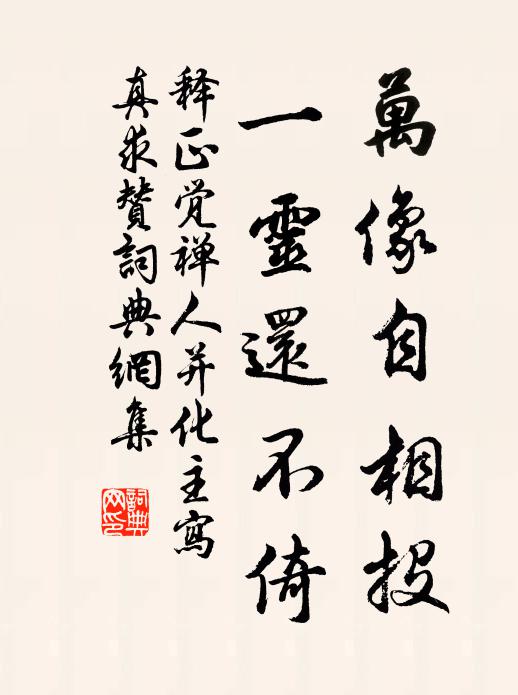 萬像自相投
一靈還不倚
释正觉禅人并化主寫
真求贊詞典網集
詞典
网印